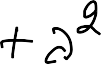 + a²